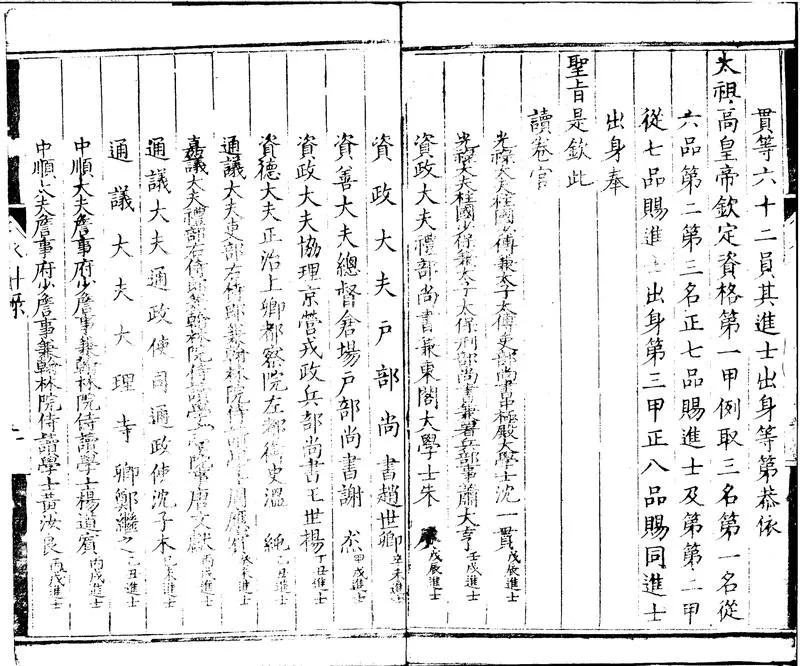 貫等六十二員其進士出身等第恭依
太祖高皇帝欽定資格第一甲例取三名第一名從
六品第二第三名正七品賜進士及第第二甲
從七品賜進士出身第三甲正八品賜同進士
出身奉
聖旨是欽此
讀卷官
光祿大夫柱國少傅兼太子太傅吏部尚書中極殿大學士沈一貫戊辰進士
光祿大夫柱國少保兼太子太保刑部尚書兼署兵部事蕭大亨壬戌進士
資政大夫禮部尚書兼東閣大學士朱賡戊辰進士
資政大夫戶部尚書趙世卿辛未進士
資善大夫總督倉場戶部尚書謝杰甲戌進士
資政大夫協理京營戎政兵部尚書王世揚丁丑進士
資德大夫正治上卿都察院左都御史溫純乙丑進士
通議大夫吏部右侍郎兼翰林院侍讀學士周應賓癸未進士
嘉議大夫禮部右侍郎兼翰林院侍讀學士掌院事唐文獻丙戌進士
通議大夫通政使司通政使沈子木己未進士
通議大夫大理寺卿鄭繼之乙丑進士
中順大夫詹事府少詹事兼翰林院侍讀學士楊道賓丙戌進士
中順大夫詹事府少詹事兼翰林院侍讀學士黃汝良丙戌進士